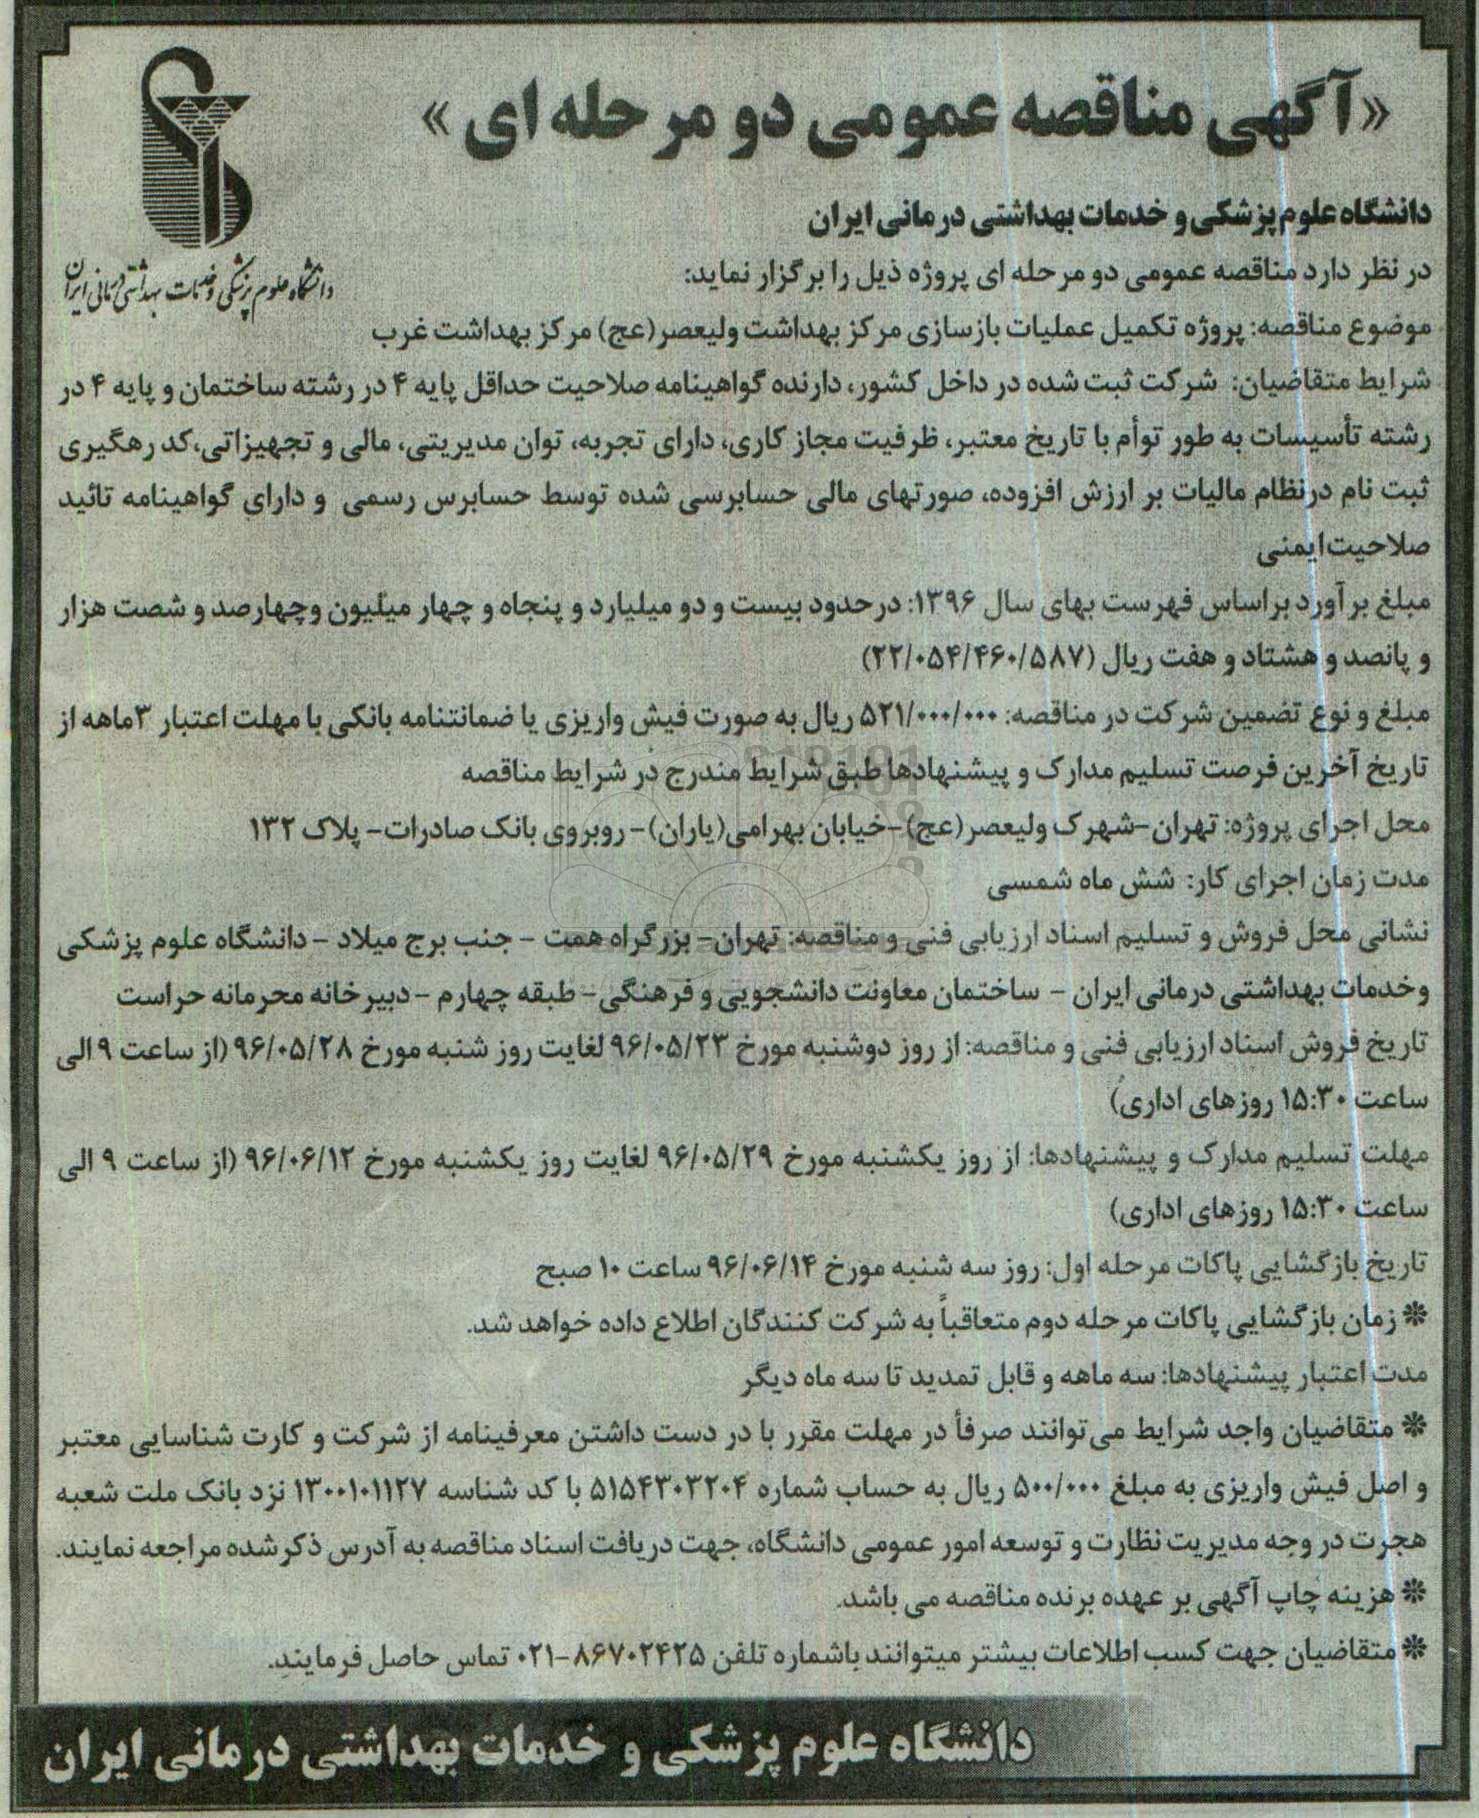 «آگهی مناقصه عمومی دو مرحله ای»
دانشگاه علوم پزشکی و خدمات بهداشتی درمانی ایران
دانشگاه علوم پزشکی و خدمات بهداشتی درمانی ایران
در نظر دارد مناقصه عمومی دو مرحله ای پروژه ذیل را برگزار نماید:
موضوع مناقصه: پروژه تکمیل عملیات بازسازی مرکز بهداشت ولیعصر(عج) مرکز بهداشت غرب
شرایط متقاضیان: شرکت ثبت شده در داخل کشور، دارنده گواهینامه صلاحیت حداقل پایه ۴ در رشته ساختمان و پایه ۴ در
رشته تأسیسات به طور توأم با تاریخ معتبر، ظرفیت مجاز کاری، دارای تجربه، توان مدیریتی، مالی و تجهیزاتی،کد رهگیری
ثبت نام درنظام مالیات بر ارزش افزوده، صورتهای مالی حسابرسی شده توسط حسابرس رسمی و دارای گواهینامه تائید
صلاحیت ایمنی
مبلغ برآورد براساس فهرست بهای سال ۱۳۹۶: درحدود بیست و دو میلیارد و پنجاه و چهار میلیون وچهارصد و شصت هزار
و پانصد و هشتاد و هفت ریال (۲۲/۰۵۴/۴۶۰/۵۸۷)
مبلغ و نوع تضمین شرکت در مناقصه: ۵۲۱/۰۰۰/۰۰۰ ریال به صورت فیش واریزی یا ضمانتنامه بانکی با مهلت اعتبار ۳ماهه از
تاریخ آخرین فرصت تسلیم مدارک و پیشنهادها طبق شرایط مندرج در شرایط مناقصه
محل اجرای پروژه: تهران-شهرک ولیعصر(عج)-خیابان بهرامی(یاران)- روبروی بانک صادرات- پلاک ۱۳۲
مدت زمان اجرای کار: شش ماه شمسی
نشانی محل فروش و تسلیم اسناد ارزیابی فنی و مناقصه: تهران- بزرگراه همت - جنب برج میلاد - دانشگاه علوم پزشکی
وخدمات بهداشتی درمانی ایران - ساختمان معاونت دانشجویی و فرهنگی- طبقه چهارم - دبیرخانه محرمانه حراست
تاریخ فروش اسناد ارزیابی فنی و مناقصه: از روز دوشنبه مورخ ۹۶/۰۵/۲۳ لغایت روز شنبه مورخ ۹۶/۰۵/۲۸ (از ساعت ۹ الی
ساعت ۱۵:۳۰ روزهای اداری)
مهلت تسلیم مدارک و پیشنهادها: از روز یکشنبه مورخ ۹۶/۰۵/۲۹ لغایت روز یکشنبه مورخ ۹۶/۰۶/۱۲ (از ساعت ۹ الی
ساعت ۱۵:۳۰ روزهای اداری)
تاریخ بازگشایی پاکات مرحله اول: روز سه شنبه مورخ ۹۶/۰۶/۱۴ ساعت ۱۰ صبح
* زمان بازگشایی پاکات مرحله دوم متعاقباً به شرکت کنندگان اطلاع داده خواهد شد.
مدت اعتبار پیشنهادها: سه ماهه و قابل تمدید تا سه ماه دیگر
* متقاضیان واجد شرایط می‌توانند صرفاً در مهلت مقرر با در دست داشتن معرفینامه از شرکت و کارت شناسایی معتبر
و اصل فیش واریزی به مبلغ ۵۰۰/۰۰۰ ریال به حساب شماره ۵۱۵۴۳۰۳۲۰۴ با کد شناسه ۱۳۰۰۱۰۱۱۲۷ نزد بانک ملت شعبه
هجرت در وجه مدیریت نظارت و توسعه امور عمومی دانشگاه، جهت دریافت اسناد مناقصه به آدرس ذکر شده مراجعه نمایند.
* هزینه چاپ آگهی بر عهده برنده مناقصه می باشد.
* متقاضیان جهت کسب اطلاعات بیشتر میتوانند باشماره تلفن ۸۶۷۰۲۴۲۵-۰۲۱ تماس حاصل فرمایند.
دانشگاه علوم پزشکی و خدمات بهداشتی درمانی ایران